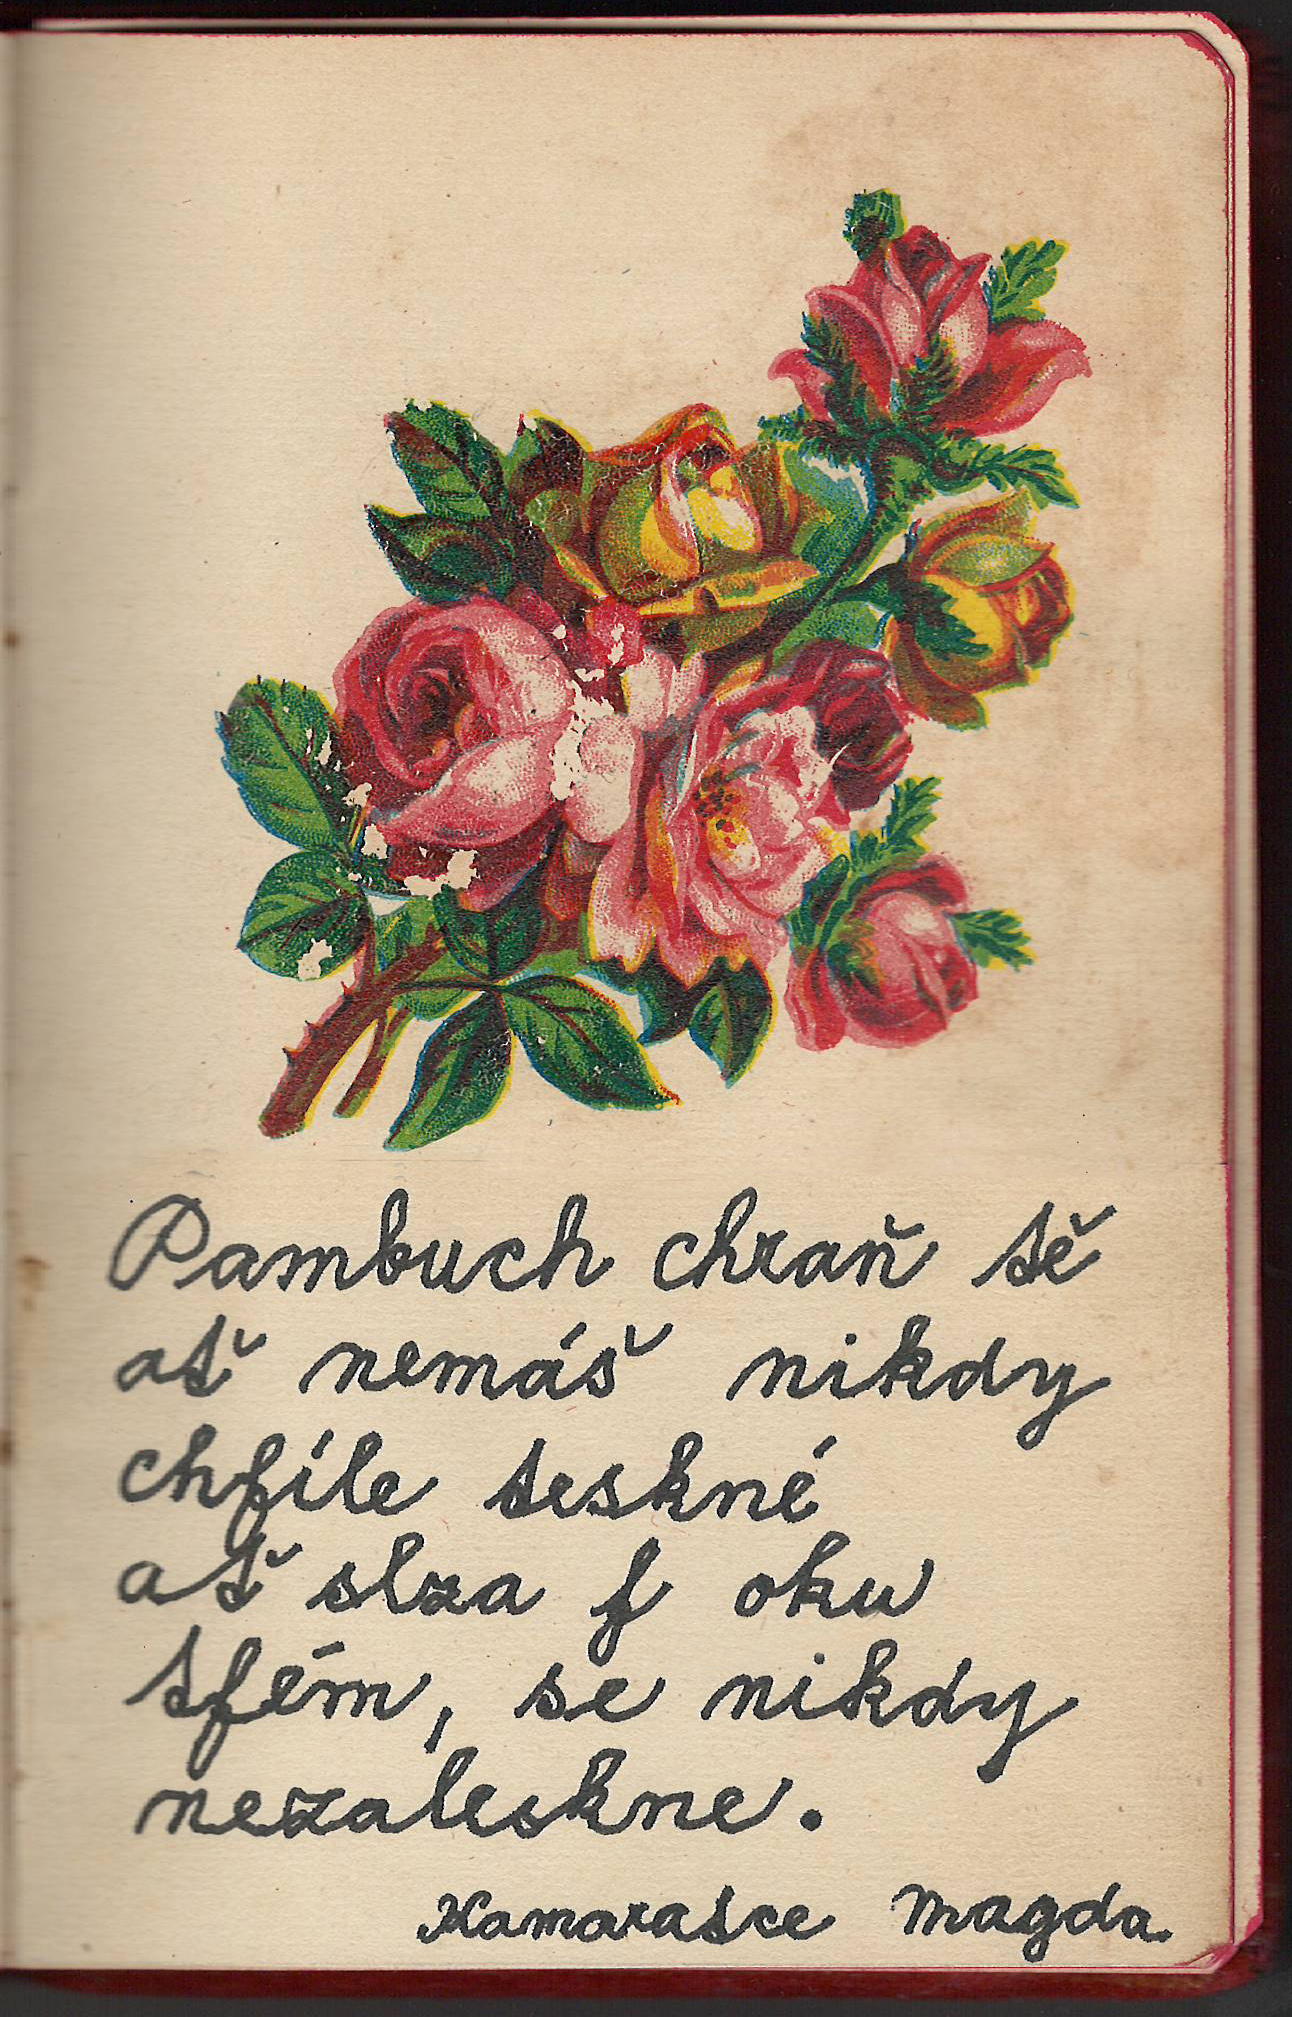 Pambuch chraň tě
ať nemáš nikdy
chfíle teskné
ať slza f oku
tfém, se nikdy
nezaleskne.
Kamaratce Magda.